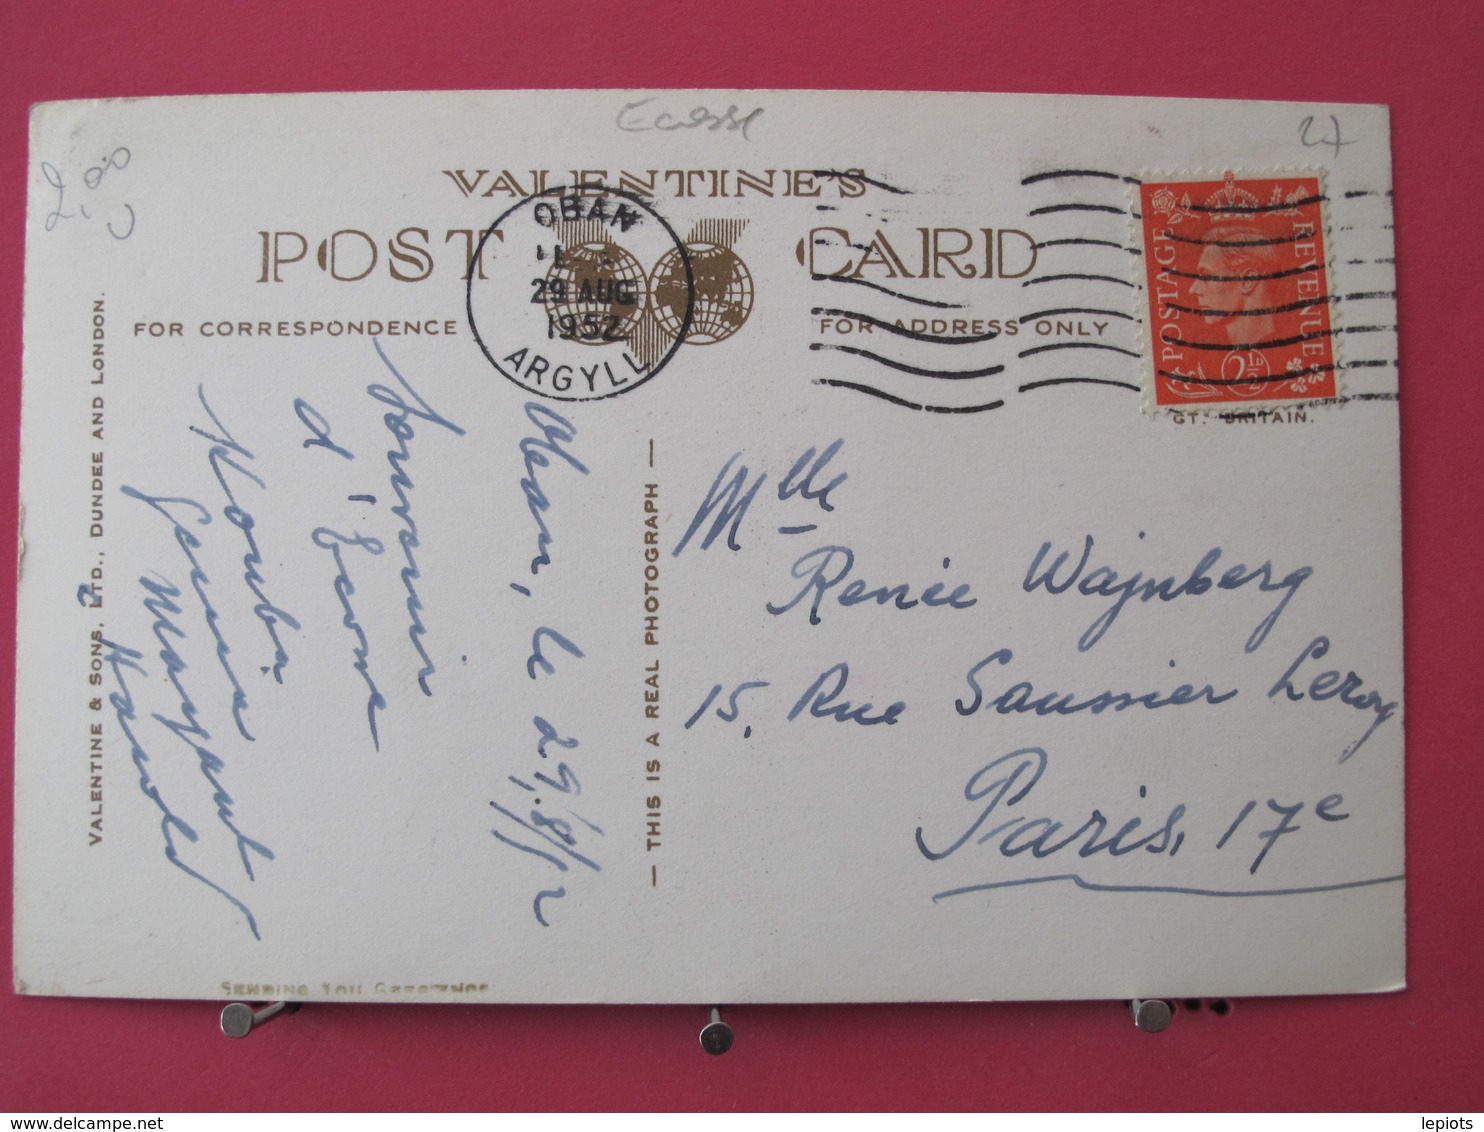 Ecosse
27
2,00
VALENTINE'S
POST CARD
FOR CORRESPONDENCE
FOR ADDRESS ONLY
OBAN
29 AUG
1952
ARGYLL
POSTAGE
REVENUE
2½D
GT. BRITAIN.
VALENTINE & SONS, LTD., DUNDEE AND LONDON.
— THIS IS A REAL PHOTOGRAPH —
Oban, le 29/8/52
Souvenir
d'Ecosse
Margaret
Harold
Mlle
Renée Wajnberg
15, Rue Saussier Leroy
Paris, 17e
SENDING YOU GREETINGS
lepiots